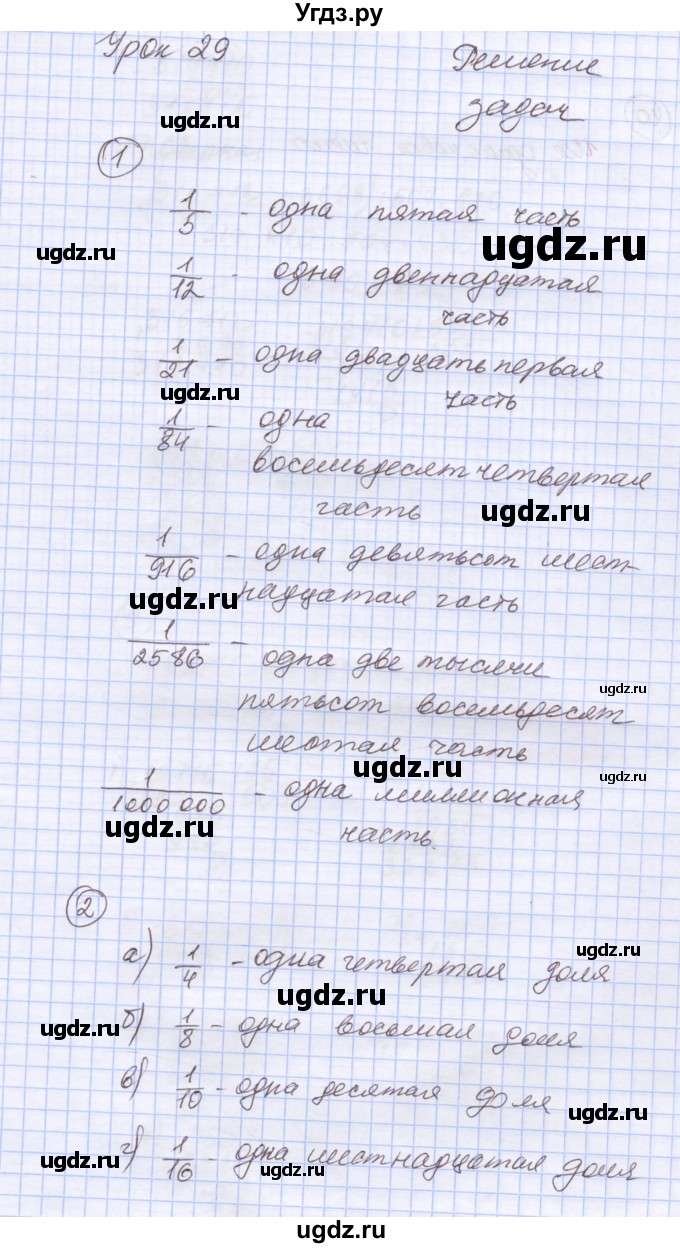 Угдз.ру
Урок 29 Решение
задач
ugdz.ru
1
1/5 - одна пятая часть
ugdz.ru ugdz.ru
1/12 - одна двеннадцатая
часть
1/21 - одна двадцатьпервая
ugdz.ru часть
1/84 - одна
восемьдесятчетвертая
часть ugdz.ru
1/916 - одна девятьсот шест-
ugdz.ru надцатая часть
1/2586 - одна две тысячи
ugdz.ru
пятьсот восемьдесят
шестая часть
ugdz.ru ugdz.ru
1/1000 000 - одна миллионная
ugdz.ru часть.
2
а) 1/4 - одна четвертая доля
ugdz.ru
ugdz.ru
ugdz.ru б) 1/8 - одна восьмая доля
в) 1/10 - одна десятая доля
ugdz.ru
г) 1/16 - одна шестнадцатая доля
ugdz.ru ugdz.ru
ugdz.ru